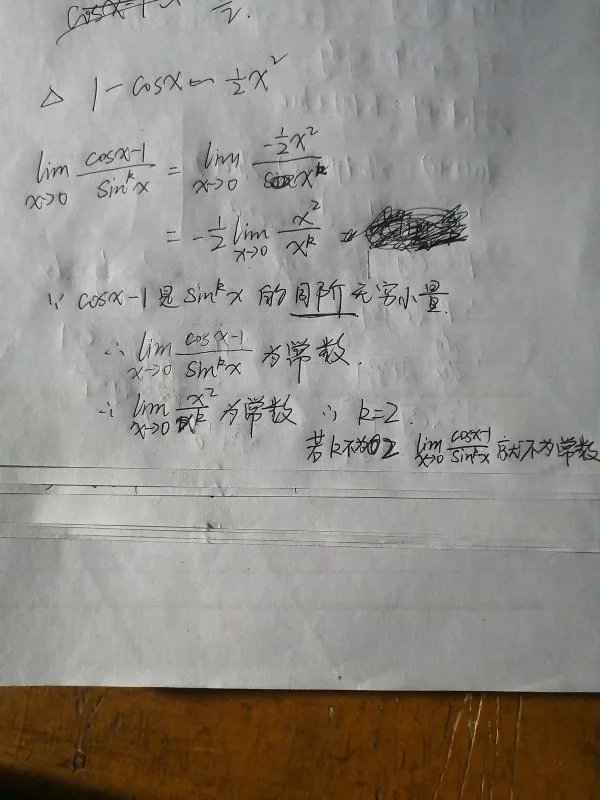 cosx-1
2.
△ 1-cosx~½x²
lim x→0 (cosx-1)/(sin^k x) = lim x→0 (-½x²)/(x^k)
= -½ lim x→0 x²/x^k =
∵ cosx-1 是 sin^k x 的同阶无穷小量.
∴ lim x→0 (cosx-1)/(sin^k x) 为常数.
∴ lim x→0 x²/x^k 为常数 ∴ k=2.
若k不为2 lim x→0 (cosx-1)/(sin^k x) 不为常数